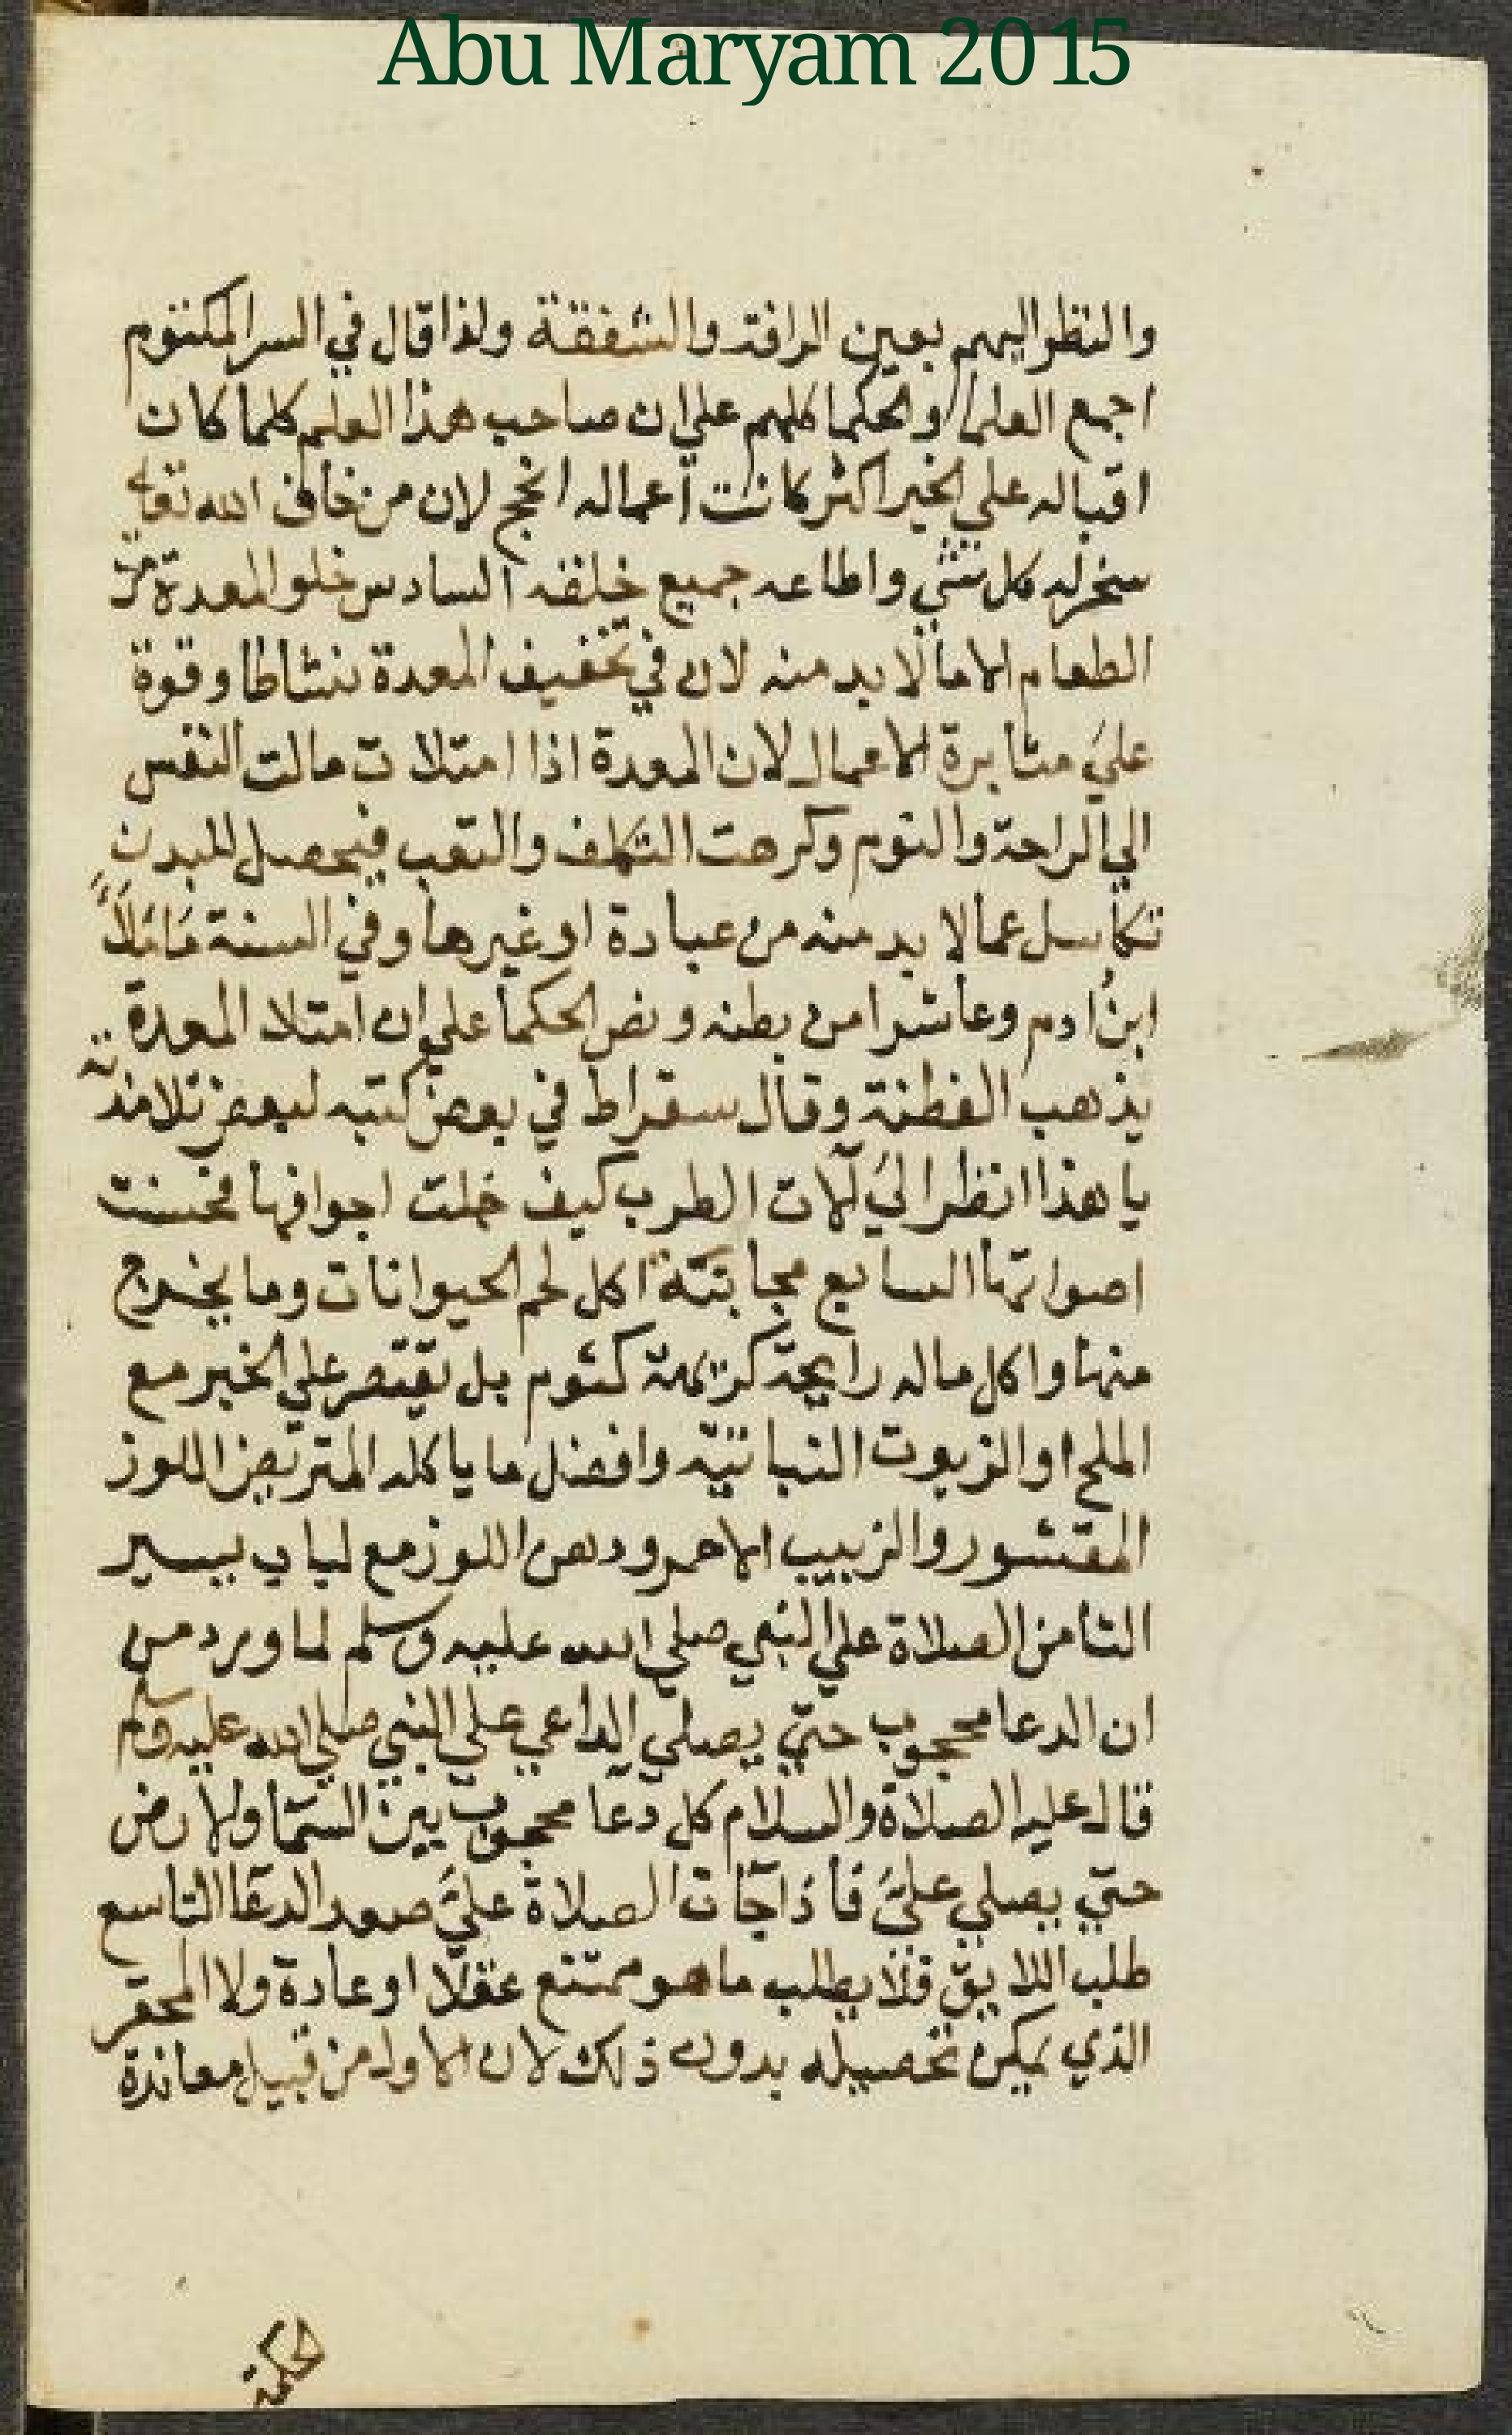 Abu Maryam 2015
والنظر اليهم بعين الرافة والشفقة ولذا قال في السر المكتوم
اجمع العلما والحكما كلهم علي ان صاحب هذا العلم كلما كان
اقباله علي الخير اكثر كانت أعماله انجح لان من خاف الله تعالي
سخر له كل شي واطاعه جميع خلقه السادس خلو المعدة من
الطعام الا ما لا بد منه لان في تخفيف المعدة نشاطا وقوة
علي مثابرة الاعمال لان المعدة اذا امتلات مالت النفس
الي الراحة والنوم وكرهت التكلف والتعب فيحصل للبدن
تكاسل عما لا بد منه من عبادة او غيرها وفي السنة مَا مَلَأَ
ابنُ ادم وعا شرا من بطنه ونص الحكما علي ان امتلا المعدة
يذهب الفطنة وقال سقراط في بعض كتبه لبعض تلامذته
يا هذا انظر الي آلات الطرب كيف خلت اجوافها فحسنت
اصواتها السابع مجانبة اكل لحم الحيوانات وما يخرج
منها واكل ماله رايحة كريهة كثوم بل يقتصر علي الخبز مع
الملح او الزيوت النباتية وافضل ما ياكله المتريض اللوز
المقشور والزبيب الاحمر ودهن اللوز مع لباب يسير
الثامن الصلاة علي النبي صلي الله عليه وسلم لما ورد من
ان الدعا محجوب حتي يصلي الداعي علي النبي صلي الله عليه وسلم
قال عليه الصلاة والسلام كل دعا محجوب بين السما والارض
حتي يصلي عليَّ فاذا جات الصلاة عليَّ صعد الدعا التاسع
طلب اللايق فلا يطلب ما هو ممتنع عقلا او عادة ولا المحقر
الذي يمكن تحصيله بدون ذلك لان الاول من قبيل معاندة
الحكمة